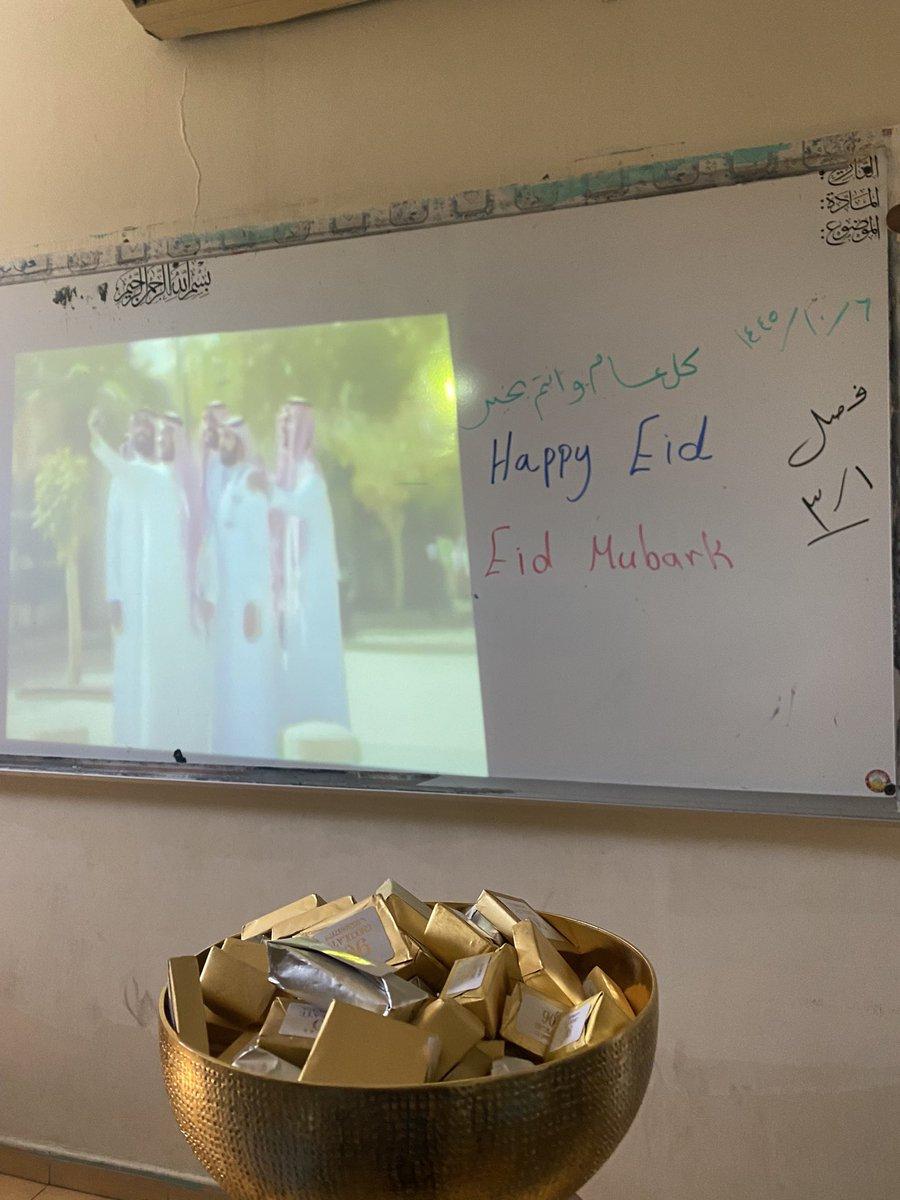 التاريخ:
المادة:
الموضوع:
بسم الله الرحمن الرحيم
١٤٤٥/١٠/٦
كل عام وانتم بخير
Happy Eid
Eid Mubark
فصل
٣/١